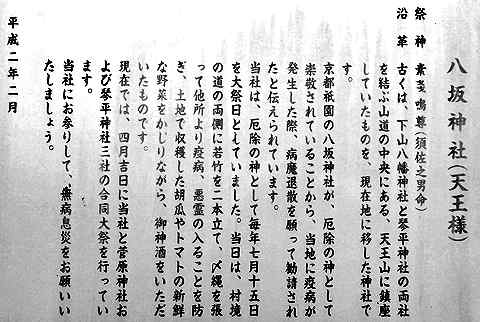 八坂神社（天王様）
祭神　素戔鳴尊（須佐之男命）
沿革　古くは、下山八幡神社と琴平神社の両社
を結ぶ山道の中央にある、天王山に鎮座
していたものを、現在地に移した神社で
す。
京都祇園の八坂神社が、厄除の神として
崇敬されていることから、当地に疫病が
発生した際、病魔退散を願って勧請され
たと伝えられています。
当社は、厄除の神として毎年七月十五日
を大祭日としていました。当日は、村境
の道の両側に若竹を二本立て、〆縄を張
って他所より疫病、悪霊の入ることを防
ぎ、土地で収穫した胡瓜やトマトの新鮮
な野菜をかじりながら、御神酒をいただ
いたものです。
現在では、四月吉日に当社と菅原神社お
よび琴平神社三社の合同大祭を行ってい
ます。
当社にお参りして、無病息災をお願いい
たしましょう。
平成二年二月